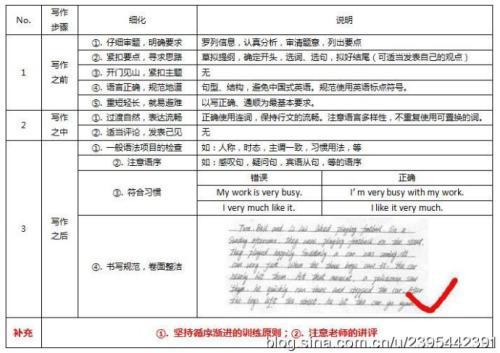 No. 写作步骤 细化 说明
1 写作之前
①. 仔细审题，明确要求 罗列信息，认真分析，审清题意，列出要点
②. 紧扣要点，寻求思路 草拟提纲，确定开头，选词、选句，拟好结尾（可适当发表自己的观点）
③. 开门见山，紧扣主题 无
④. 语言正确，规范地道 句型、结构，避免中国式英语。规范使用英语标点符号。
⑤. 重短轻长，就易避难 以写正确、通顺为最基本要求。
2 写作之中
①. 过渡自然，表达流畅 正确使用连词，保持行文的流畅。注意语言多样性，不重复使用可置换的词。
②. 适当评论，发表己见 无
3 写作之后
①. 一般语法项目的检查 如：人称，时态，主谓一致，习惯用法，等
②. 注意语序 如：感叹句，疑问句，宾语从句，等的语序
③. 符合习惯 错误 正确
My work is very busy. I'm very busy with my work.
I very much like it. I like it very much.
④. 书写规范，卷面整洁
补充 ①. 坚持循序渐进的训练原则；②. 注意老师的讲评
blog.sina.com.cn/u/2395442391